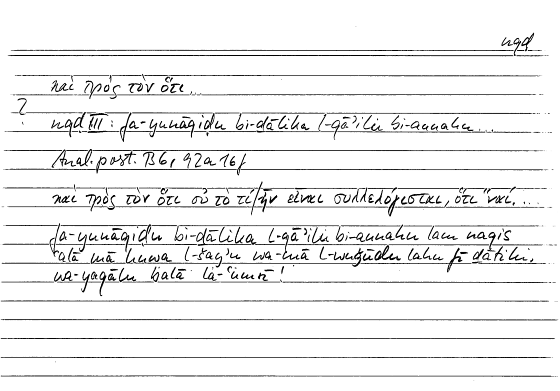 nqḍ
καὶ πρὸς τὸν ὅτι...
?
nqḍ III: fa-yunāqiḍu bi-ḏālika l-qāʾilu bi-annahu...
Anal. post. B6, 92a 16f
καὶ πρὸς τὸν ὅτι οὐ τὸ τί ἦν εἶναι συλλελόγισται, ὅτι "ναί...
fa-yunāqiḍu bi-ḏālika l-qāʾilu bi-annahu lam naqis
ʿalā mā huwa l-šayʾu wa-mā l-wuǧūdu lahu fī ḏātihi.
wa-yaqālu balā la-ʿumrī!